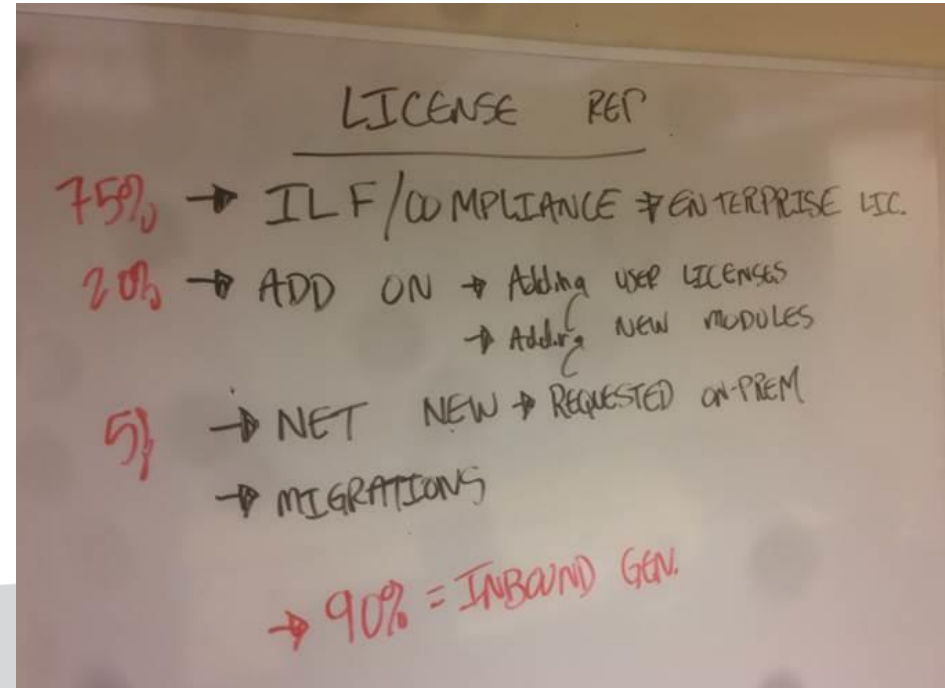 LICENSE REP
75% → ILF/COMPLIANCE → ENTERPRISE LIC.
20% → ADD ON → Adding USER LICENSES
→ Adding NEW MODULES
5% → NET NEW → REQUESTED ON-PREM
→ MIGRATIONS
→ 90% = INBOUND GEN.